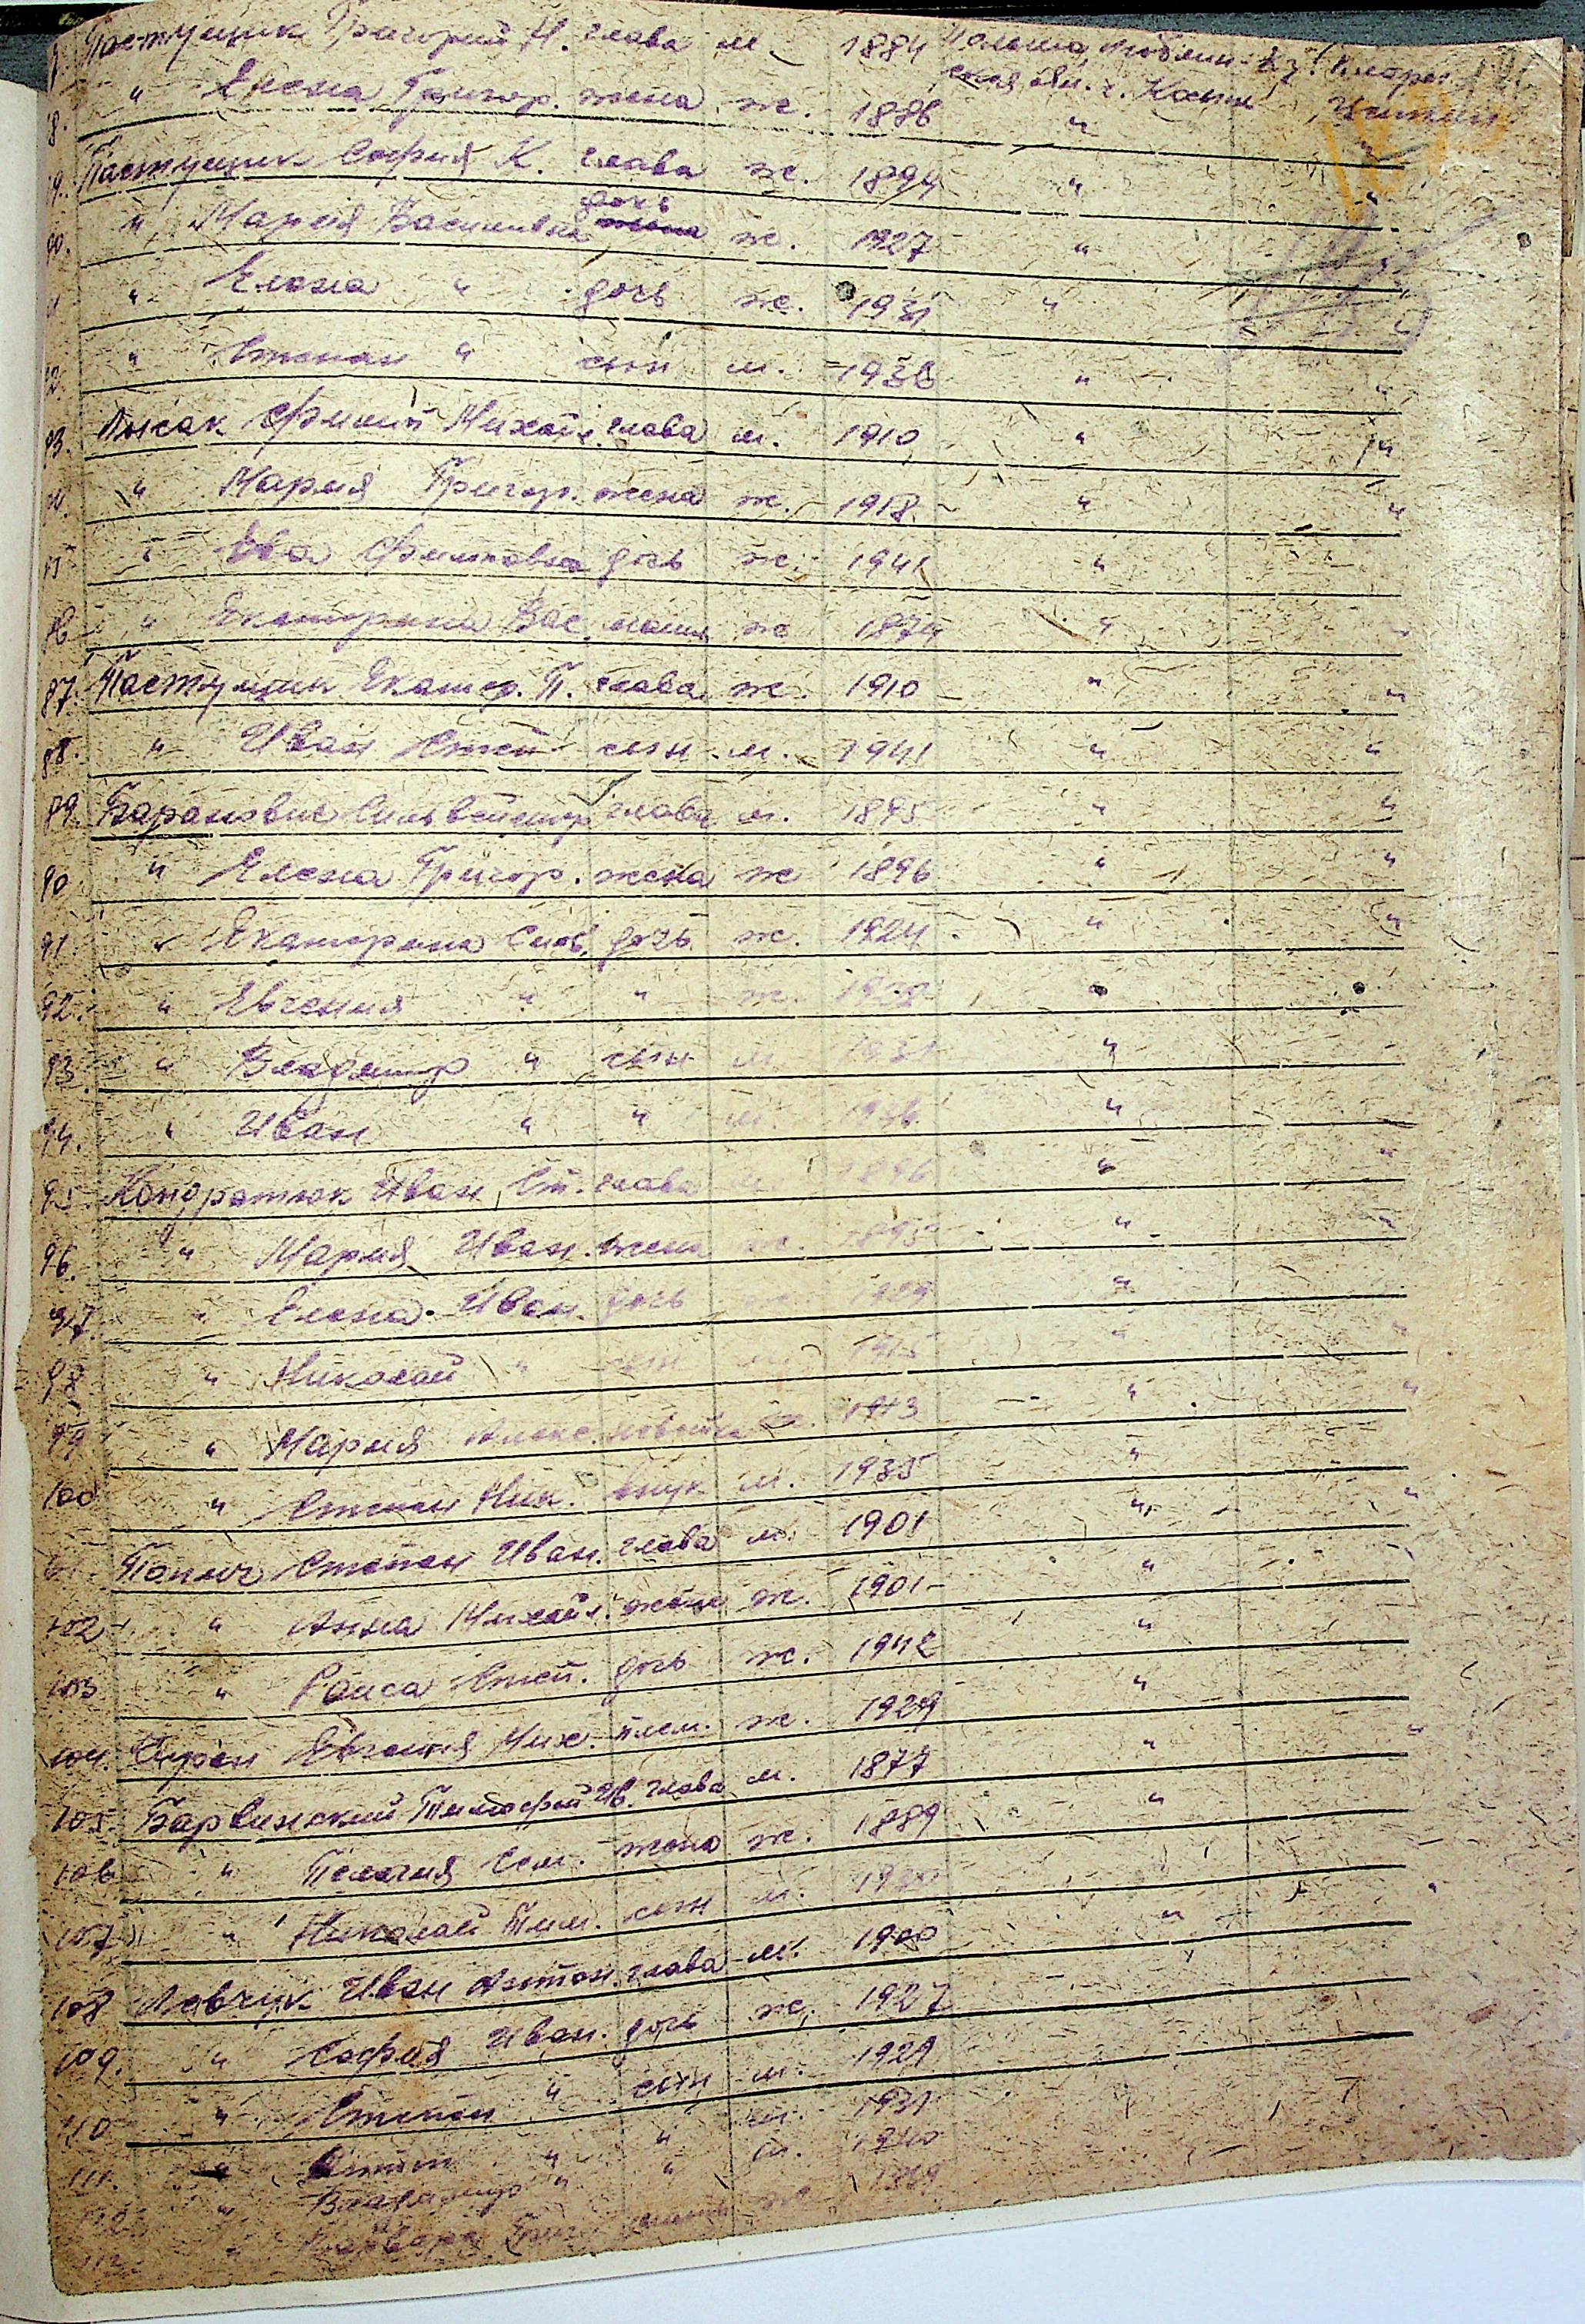 Пастущик Григорий Н. глава м. 1884 Польша, Люблин-
ская обл. г. Косын
8. " Елена Григор. жена ж. 1886 " "
9. Пастущик София К. глава ж. 1894 " "
80. " Мария Васильевна дочь ж. 1927 " "
" Елена " дочь ж. 1931 " "
82. " Степан " сын м. 1936 " "
83. Лысак Филип Михайл. глава м. 1910 " "
" Мария Григор. жена ж. 1918 " "
" Ева Филиповна дочь ж. 1941 "
86. " Екатерина Вас. ж. 1874 " "
87. Пастущик Екатер. П. глава ж. 1910 " "
88. " Иван Степ. сын м. 1941 " "
89. Баранович Сильвестр глава м. 1895 " "
90 " Елена Григор. жена ж 1896 " "
91 " Екатерина Сильв. дочь ж. 1924 " "
92. " Евгения " " ж. "
93. " Владимир " сын м "
94. " Иван " " м 1936 "
95 Кондратюк Иван Ст. глава м. 1896 " "
96. " Мария Иван. жена ж. " "
97. " Елена Иван. дочь 1929 "
98 " Николай " сын м. 1915 " "
99 " Мария Алекс. невестка ж. 1913 " "
100 " Степан Ник. внук м. 1935 "
Степан Иван. глава м. 1901 " "
102 " Анна Михайл. жена ж. 1901 "
103 " Раиса Степ. дочь ж. 1942 "
104. Евгения Мих. плем. ж. 1929 "
105. Барвинский Тимофей Ив. глава м. 1877 " "
106 " Пелагия Сем. жена ж. 1889 "
107 " Николай Тим. сын м.
108 Левчук Иван Антон. глава м. 1900 "
109. " София Иван. дочь ж. 1927
110 " Степан " сын м. 1929
111. " " " м. 1931
112 " Владимир " " м. 1940
" Варвара мать ж